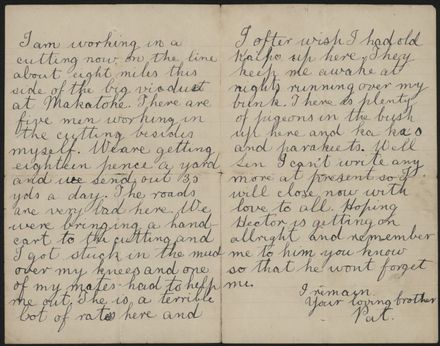 I am working in a
cutting now on the line
about eight miles this
side of the big viaduct
at Makatote. There are
five men working in
the cutting besides
myself. We are getting
eighteen pence a yard
and we send out 35
yds a day. The roads
are very bad here. We
were bringing a hand
cart to the cutting and
I got stuck in the mud
over my knees and one
of my mates had to help
me out. There is a terrible
lot of rats here and
I often wish I had old
Kaipo up here. They
keep me awake at
night running over my
bunk. There is plenty
of pigeons in the bush
up here and ka kas
and parakeets. Well
Len I can't write any
more at present so I
will close now with
love to all. Hoping
Hector is getting on
allright and remember
me to him you know
so that he wont forget
me.
I remain
Your loving brother
Pat.